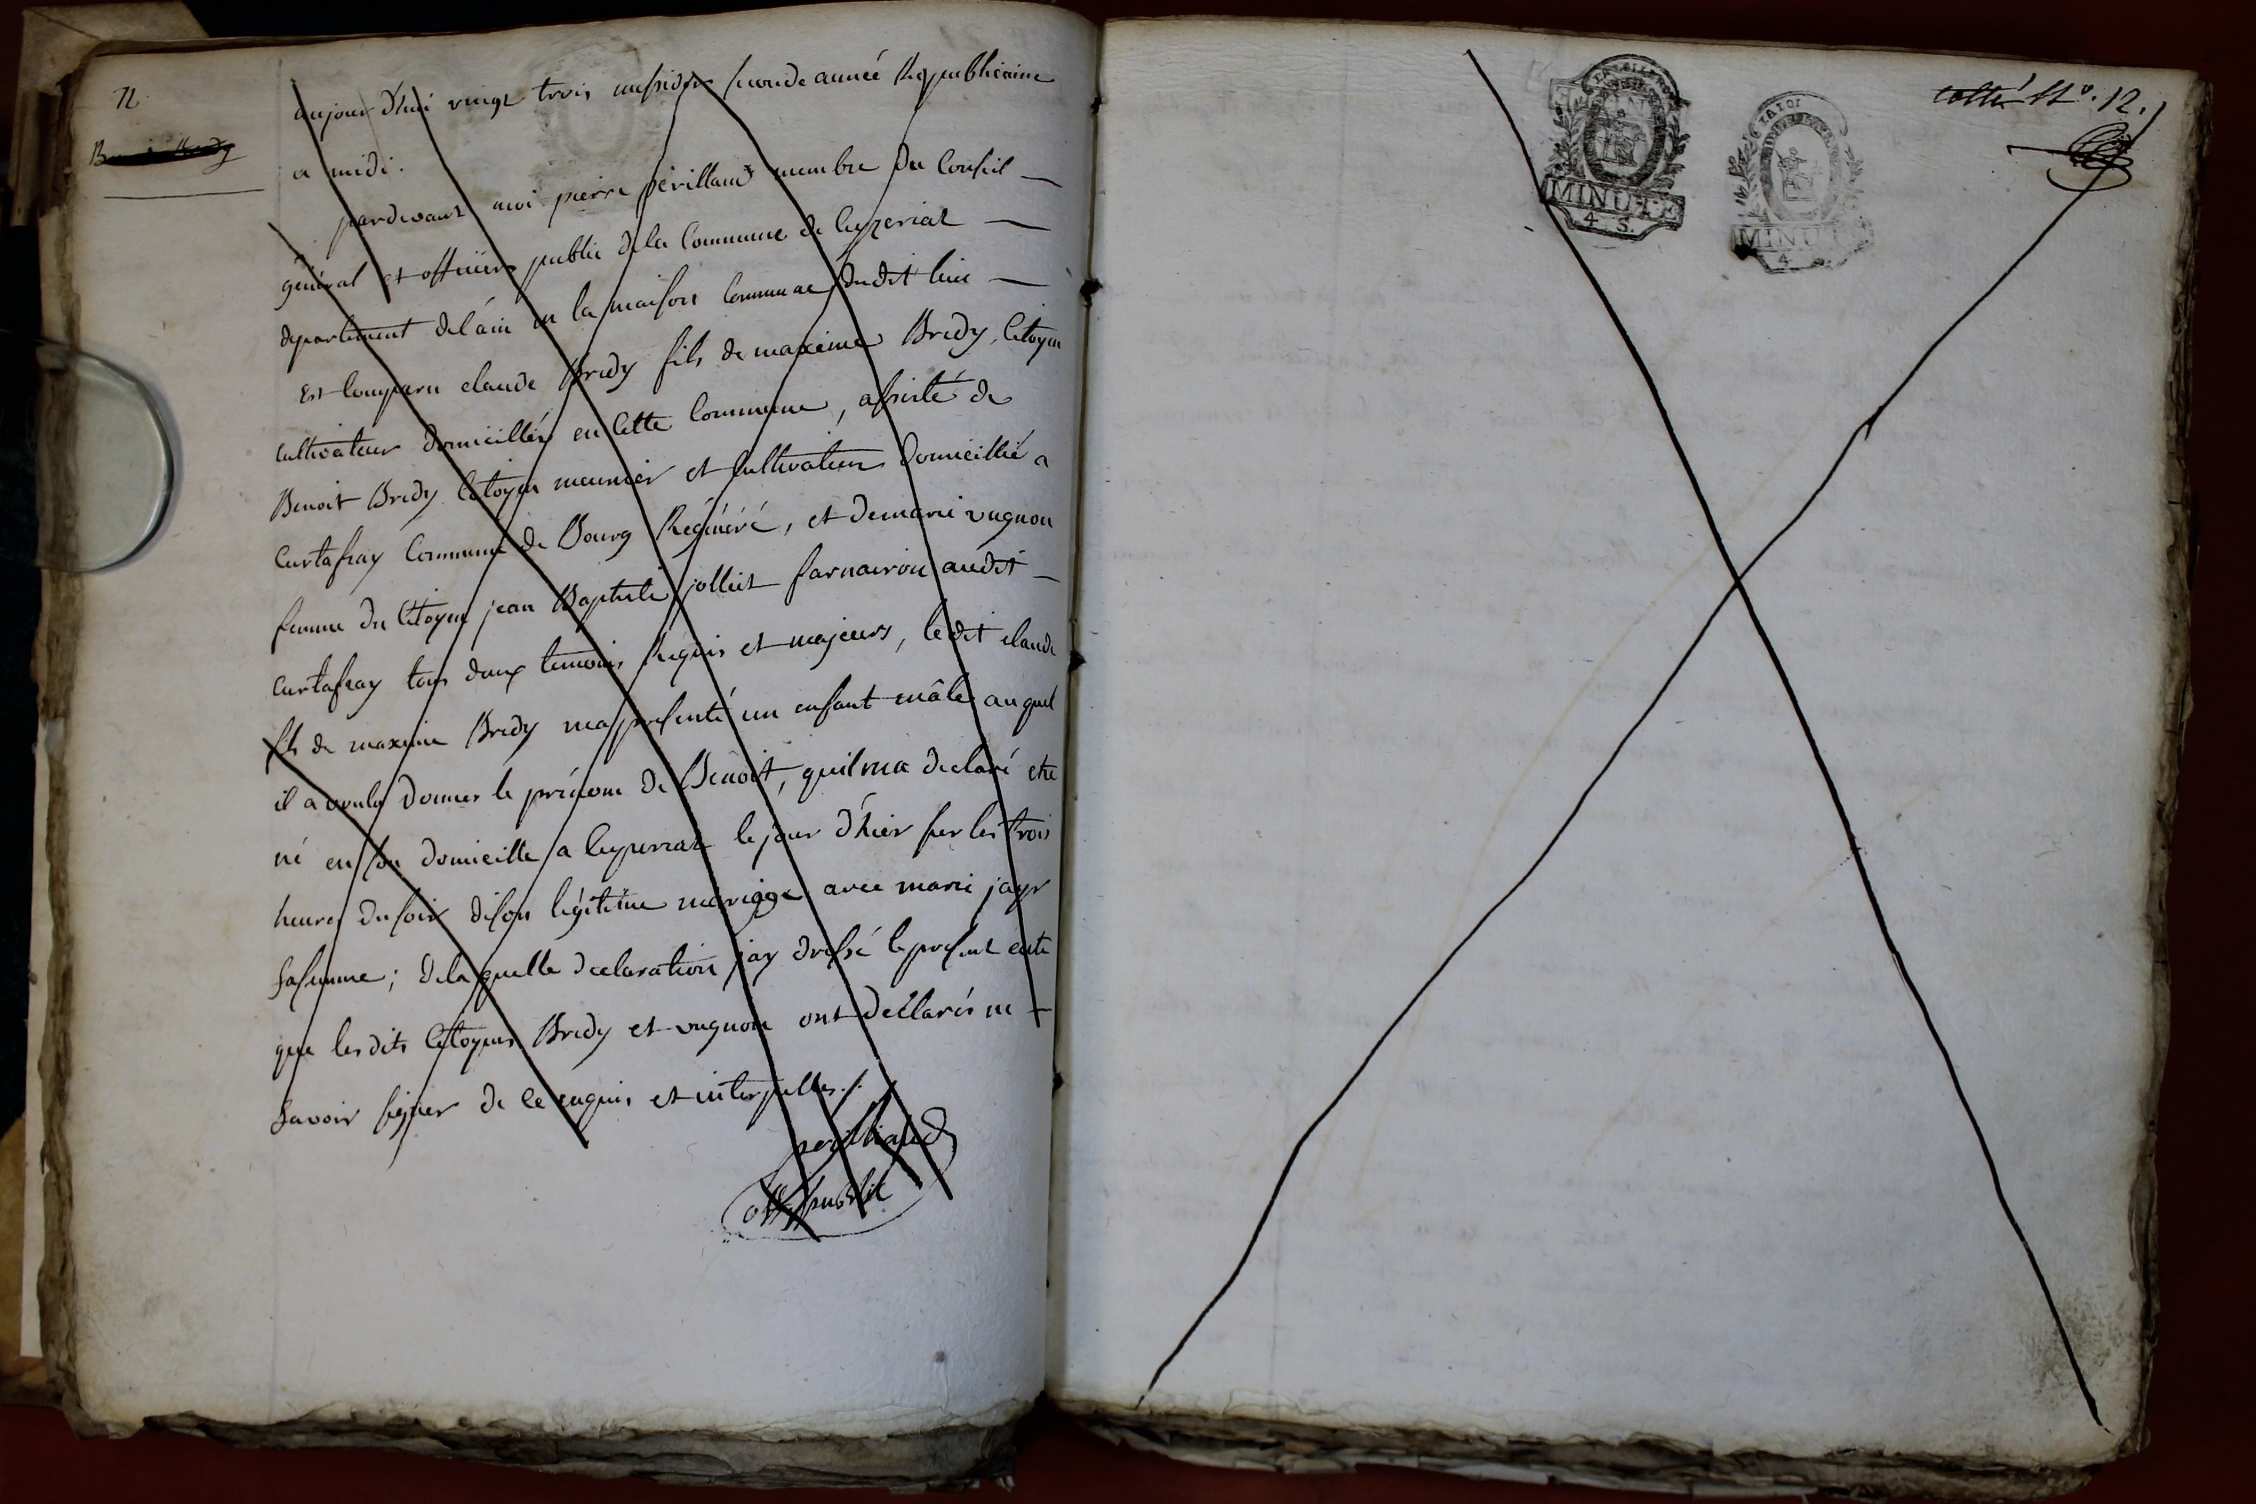 11
Benoit Bredy
aujourd'hui vingt trois messidor seconde année Republicaine
a midi.
pardevant moi pierre perillaud membre du Conseil
général et officier public de la Commune de Ceyzeriat
departement de l'ain en la maison Commune dudit lieu
est Comparu claude Bredy fils de maxime Bredy, Citoyen
cultivateur domicillié en Cette Commune, assisté de
Benoit Bredy Citoyen meunier et Cultivateur domicillié a
Curtafray Commune de Bourg Régénéré, et de marie vugnon
femme du Citoyen jean Baptiste jolliet farnairon audit
Curtafray tous deux temoins Requis et majeurs, ledit claude
fils de maxime Bredy ma présenté un enfant mâle auquel
il a voulu donner le prénom de Benoit, quil ma declaré etre
né en son domicille a Ceyzeriat le jour d'hier sur les trois
heures du soir de son légitime mariage avec marie jayr
sa femme; de laquelle declaration jay dressé le present acte
que lesdits Citoyens Bredy et vugnon ont déClarés ne
savoir signer de ce enquis et interpellés ./.
perillaud
off. public
cotté N°. 12.
MINUTE
4 S.
MINUTE
4